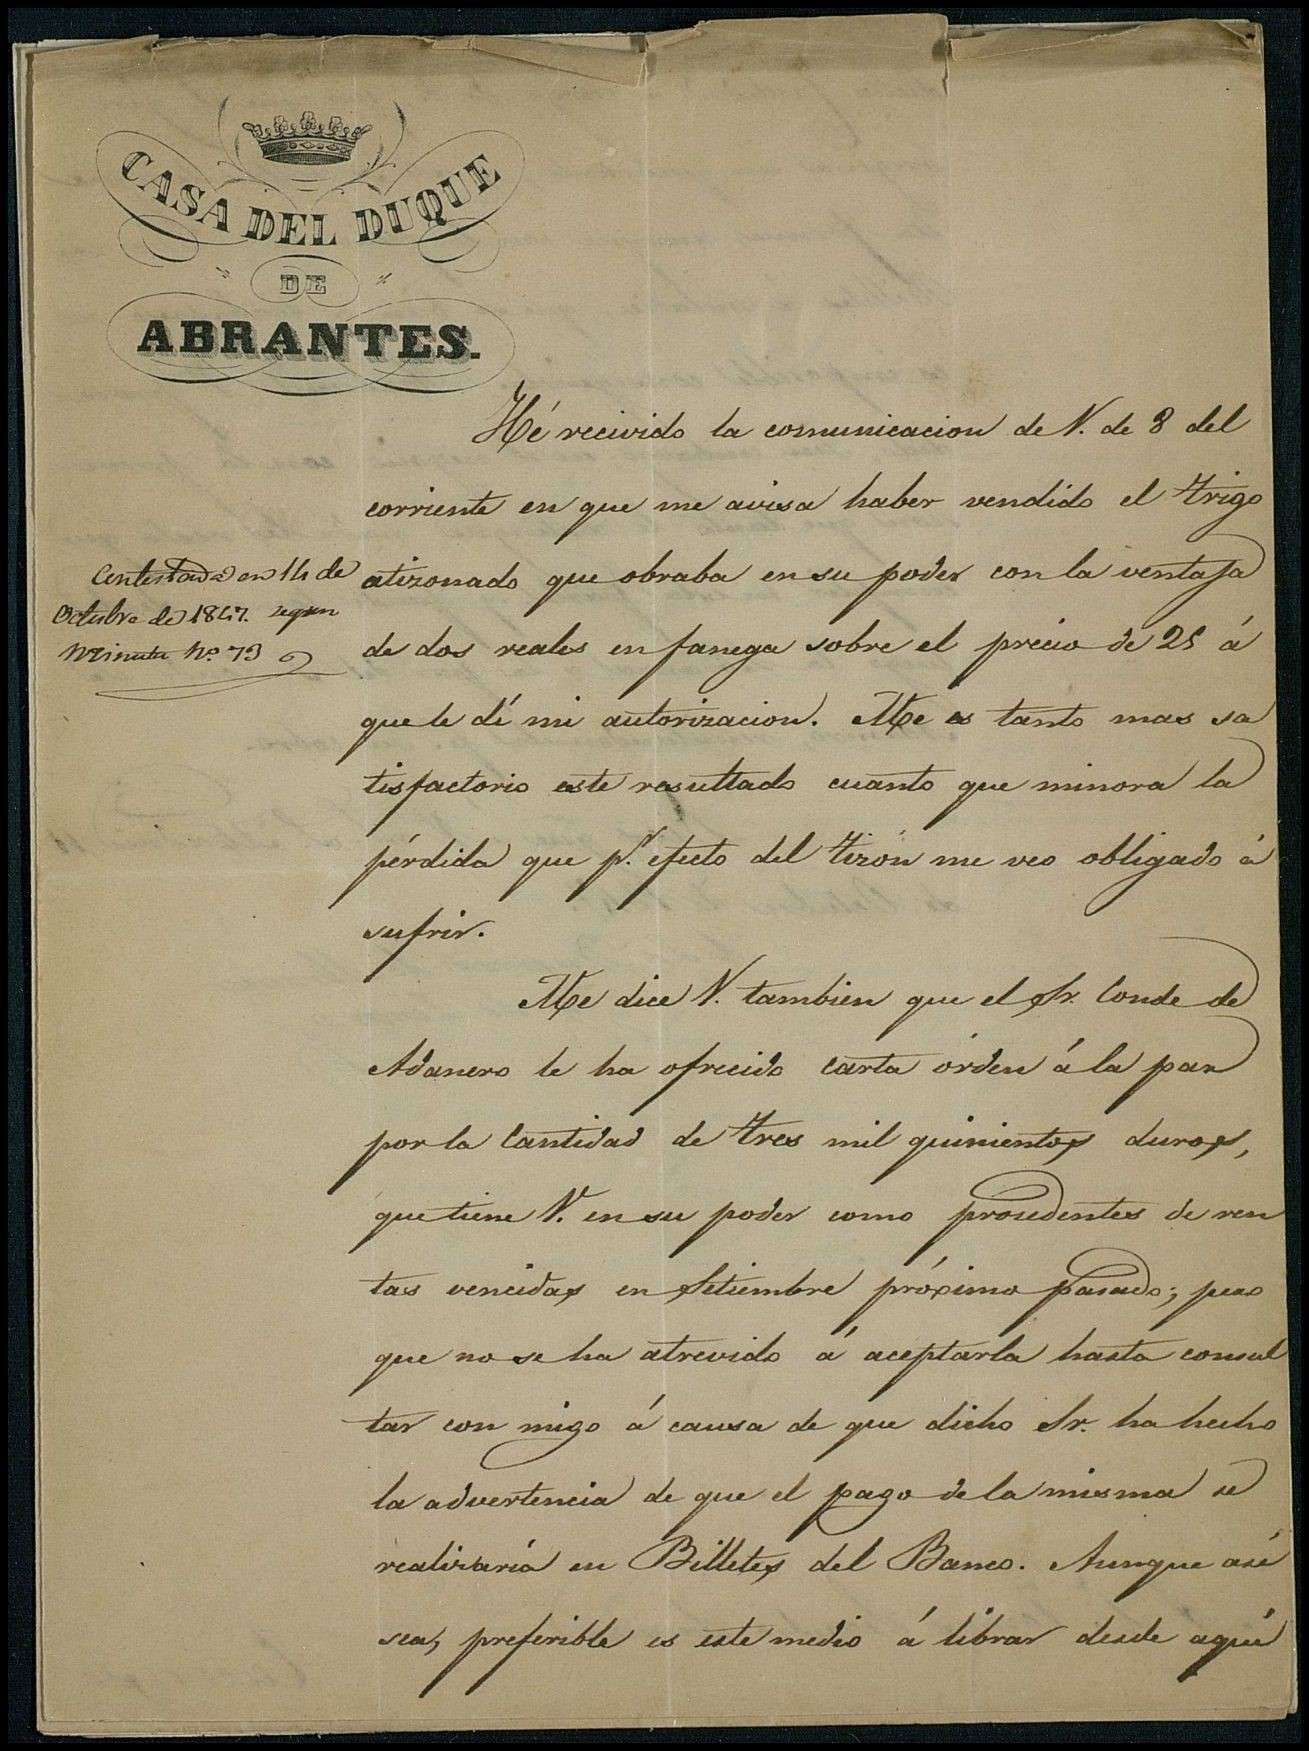 CASA DEL DUQUE
DE
ABRANTES.
Contestada en 14 de
Octubre de 1847. segun
Minuta Nº 73
Hé recivido la comunicacion de V. de 8 del
corriente en que me avisa haber vendido el trigo
atizonado que obraba en su poder con la ventaja
de dos reales en fanega sobre el precio de 25 á
que le dí mi autorizacion. Me es tanto mas sa
tisfactorio este resultado cuanto que minora la
pérdida que p.r efecto del tizón me veo obligado á
sufrir.
Me dice V. tambien que el Sr. Conde de
Adanero le ha ofrecido carta órden á la par
por la Cantidad de tres mil quinientos duros,
que tiene V. en su poder como prosedentes de ren
tas vencidas en Setiembre próximo pasado; pero
que no se ha atrevido á aceptarla hasta consul
tar con migo á causa de que dicho Sr. ha hecho
la advertencia de que el pago de la misma se
realizaría en Billetes del Banco. Aunque asi
sea, preferible es este medio á librar desde aqui